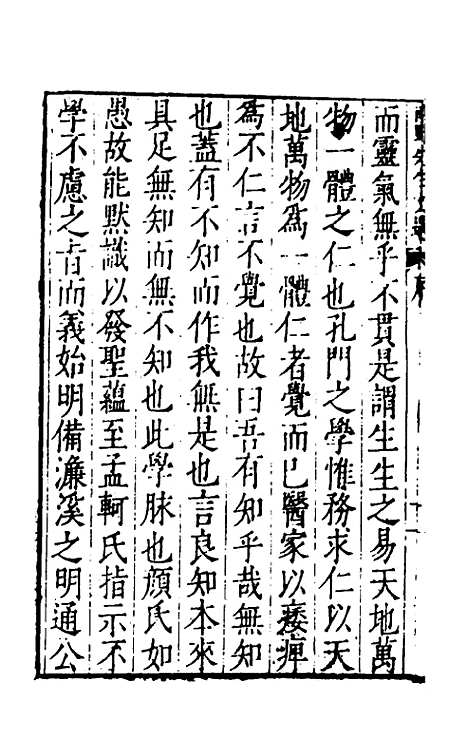 而靈氣無乎不貫是謂生生之易天地萬
物一體之仁也孔門之學惟務求仁以天
地萬物爲一體仁者覺而已醫家以痿痺
爲不仁言不覺也故曰吾有知乎哉無知
也蓋有不知而作我無是也言良知本來
具足無知而無不知也此學脉也顔氏如
愚故能默識以發聖蘊至孟軻氏指示不
學不慮之旨而義始明備濂溪之明通公